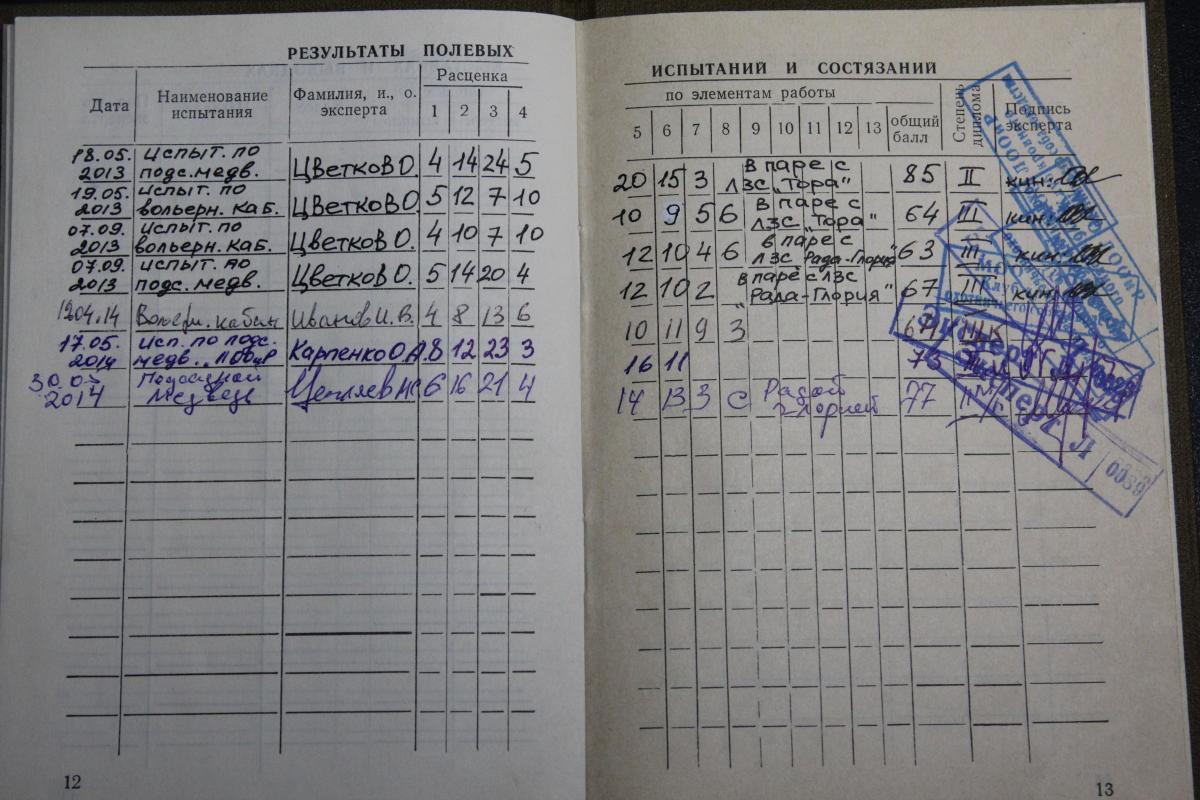 РЕЗУЛЬТАТЫ ПОЛЕВЫХ
Дата Наименование испытания Фамилия, и., о. эксперта Расценка
1 2 3 4
18.05. 2013 испыт. по подс. медв. Цветков О. 4 14 24 5
19.05. 2013 испыт. по вольерн. каб. Цветков О. 5 12 7 10
07.09. 2013 испыт. по вольерн. каб. Цветков О. 4 10 7 10
07.09. 2013 испыт. по подс. медв. Цветков О. 5 14 20 4
Вольерн. кабан Иванов И. В. 4 8 13 6
17.05. 2014 Исп. по подс. медв. Карпенко О.А. 8 12 23 3
2014 Подсадной Медведь 6 16 21 4
12
ИСПЫТАНИЙ И СОСТЯЗАНИЙ
по элементам работы общий балл Степень диплома Подпись эксперта
5 6 7 8 9 10 11 12 13
20 15 3 в паре с ЛЗС „Тора" 85 II кин:
10 9 5 6 в паре с ЛЗС „Тора" 64 III кин:
12 10 4 6 в паре с ЛЗС Рада-Глория" 63 III кин:
12 10 2 в паре с ЛЗС „Рада-Глория" 67 III кин:
10 11 9 3
16 11
14 13 3 с Радой Глорией 77
0089
13